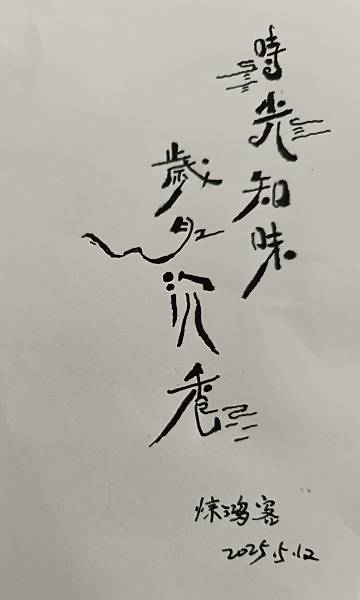 時光知味
歲月沉香
惊鸿客
2025.5.12